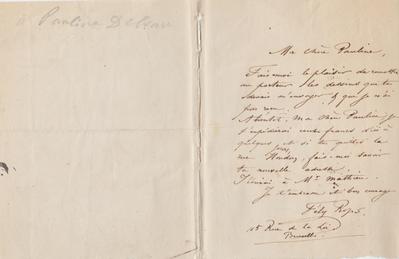 à Pauline
Ma chère Pauline,
Fais-moi le plaisir de remettre
au porteur les dessins que tu
devais m'envoyer & que je n'ai
pas reçu.
A bientôt, ma chère Pauline, je
t'expédierai cent francs d'ici à
quelques jours et si tu quittes la
rue fais-moi savoir
ta nouvelle adresse.
J'écrirai à Mr Mathieu.
Je t'embrasse & bon courage
Fély Rops.
15 Rue de la Loi
Bruxelles